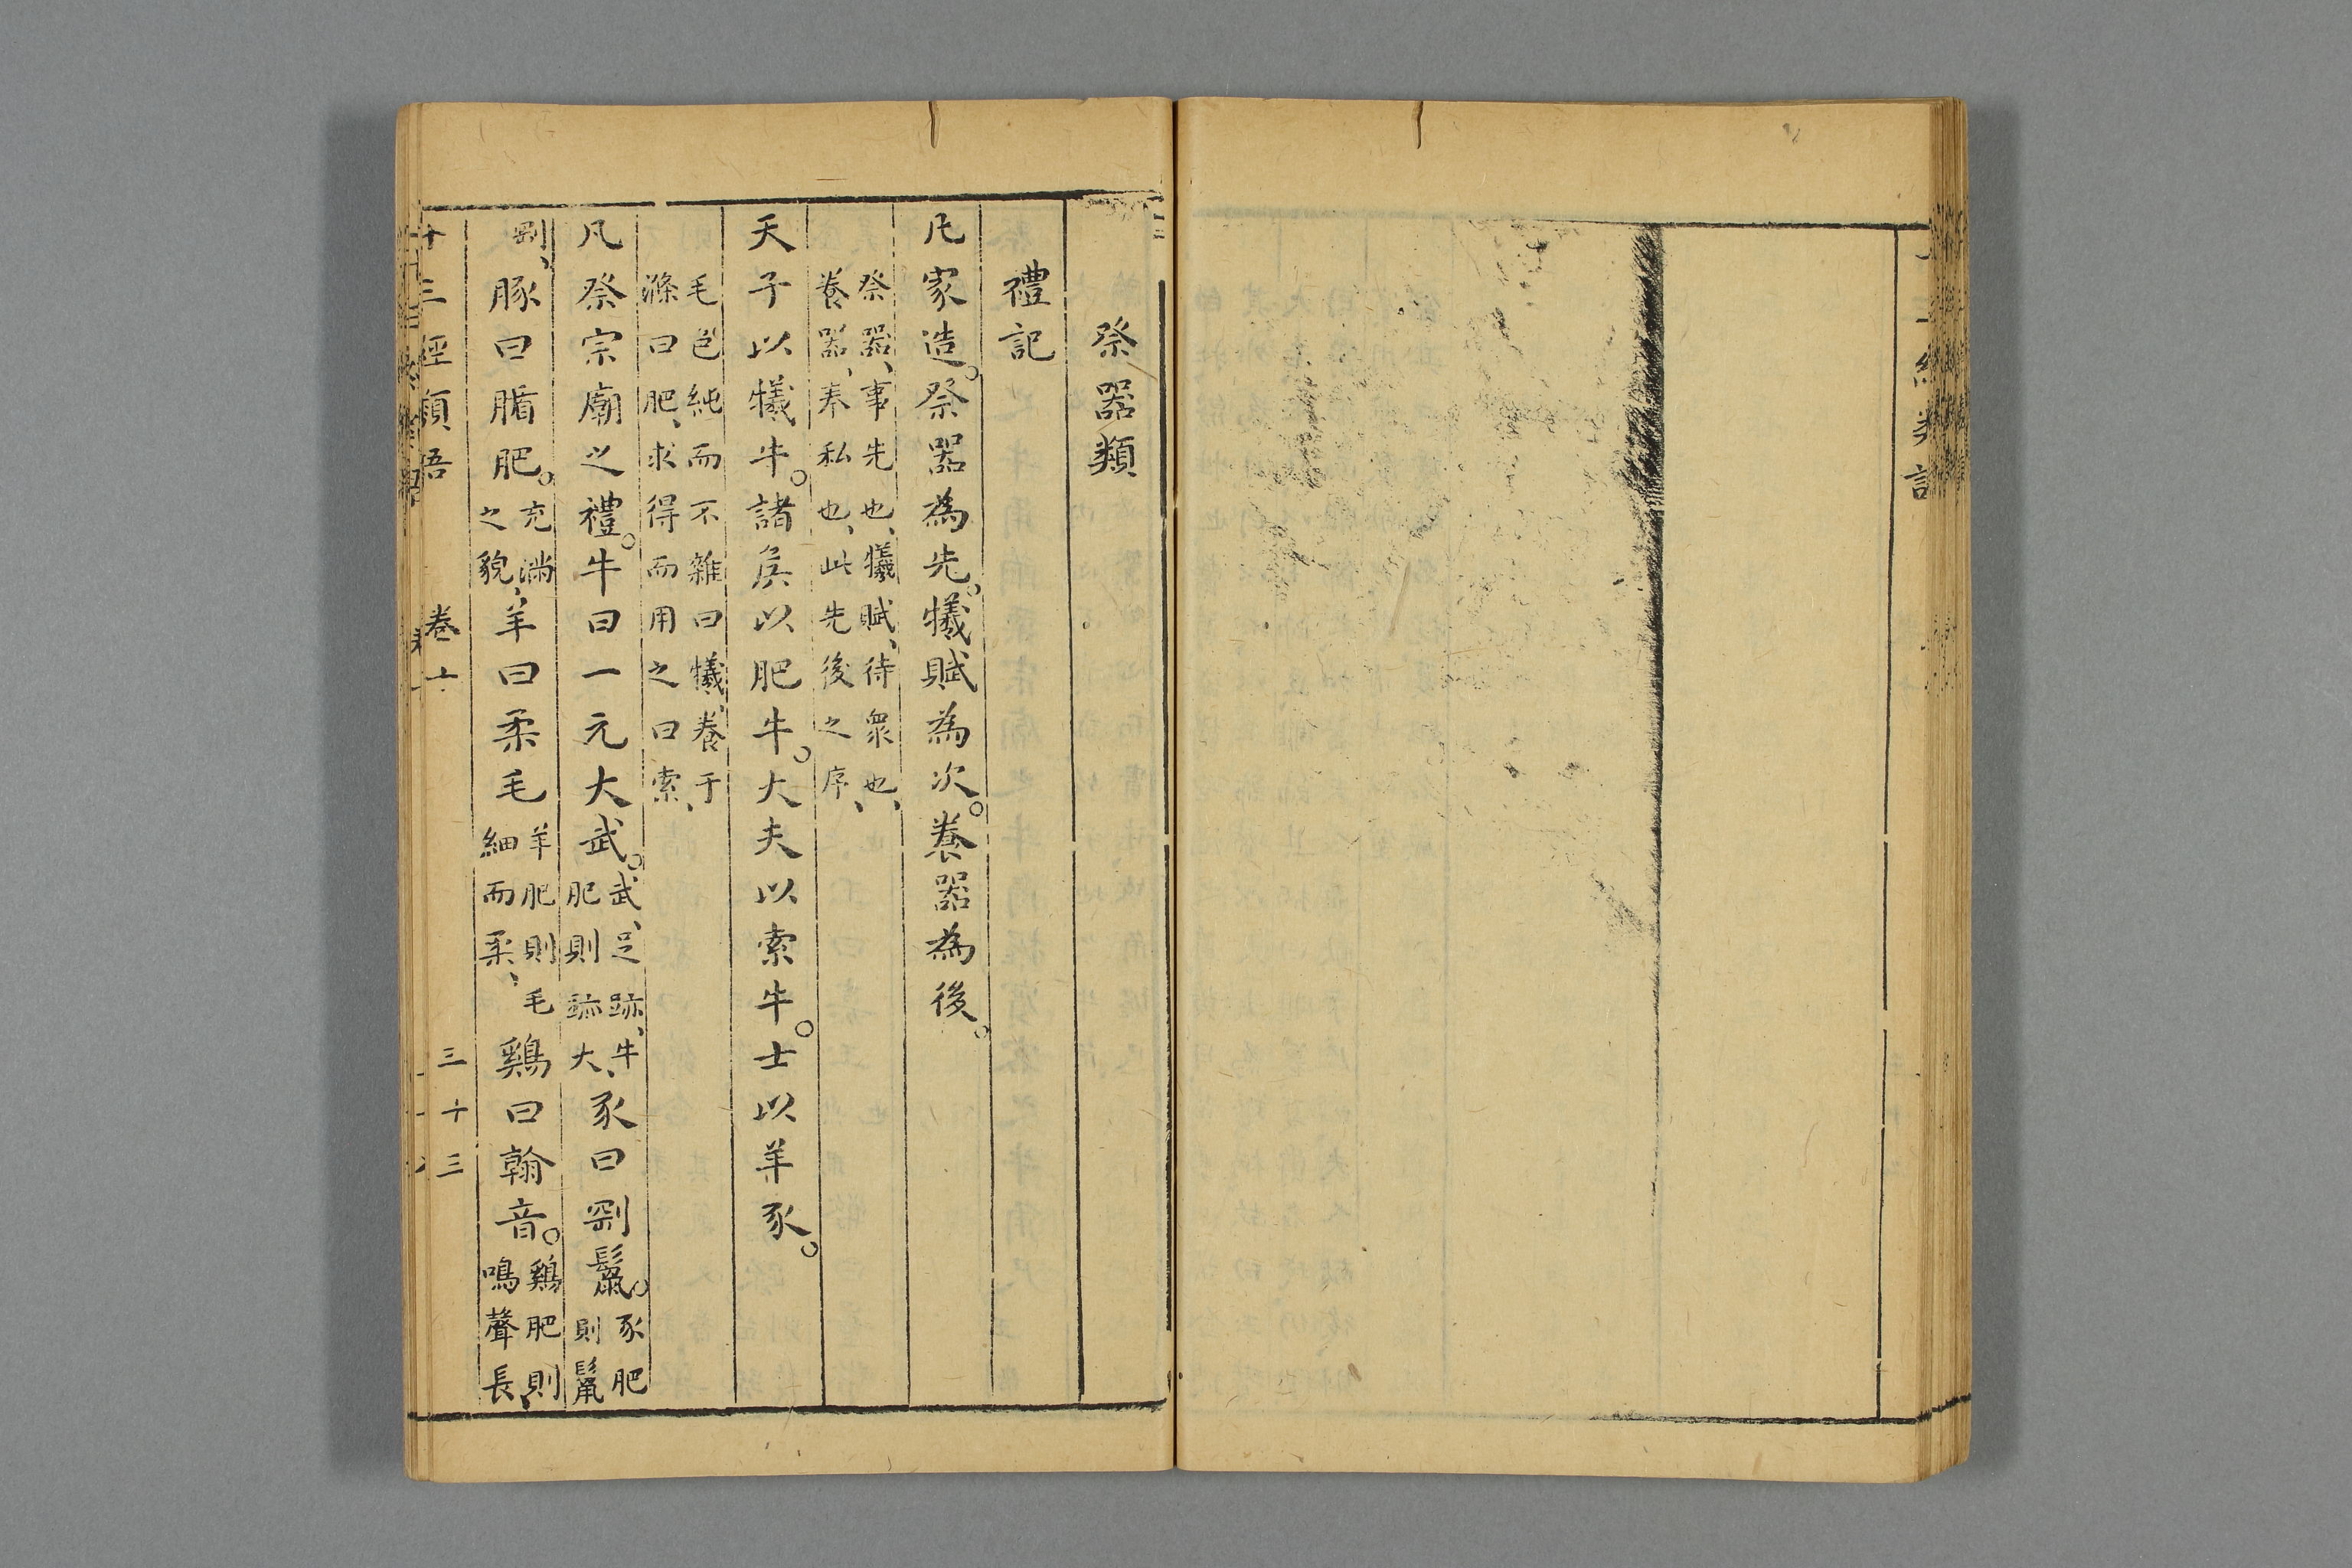 祭器類
禮記
凡家造。祭器為先。犧賦為次。養器為後。
祭器、事先也、犧賦、待衆也、
養器、奉私也、此先後之序、
天子以犧牛。諸矦以肥牛。大夫以索牛。士以羊豕。
毛色純而不雜曰犧、養于
滌曰肥、求得而用之曰索、
凡祭宗廟之禮。牛曰一元大武。武、足跡、牛肥則跡大、豕曰剛鬣。豕肥則鬣
剛、豚曰腯肥。充満之貌、羊曰柔毛羊肥則毛細而柔、鷄曰翰音。鷄肥則鳴聲長、
十三經類語 卷十 三十三